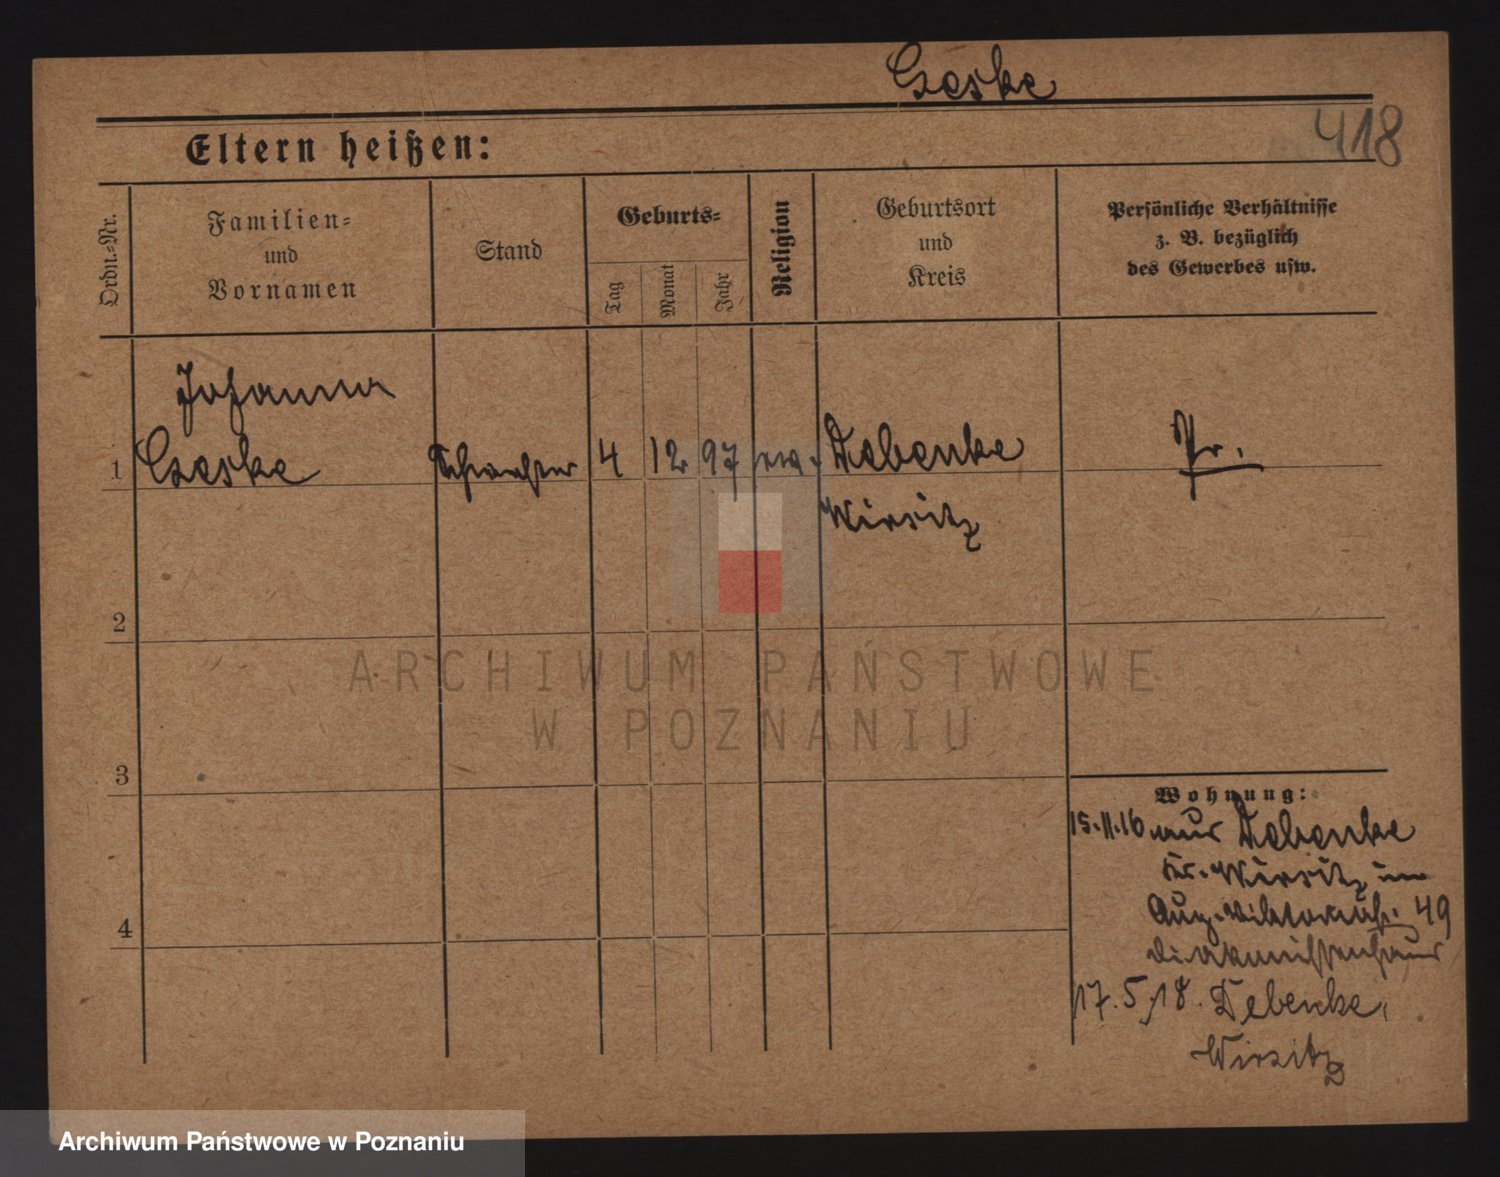 Geske
418
Eltern heißen:
Ordn.-Nr.
Familien-
und
Vornamen
Stand
Geburts-
Tag
Monat
Jahr
Religion
Geburtsort
und
Kreis
Persönliche Verhältnisse
z. B. bezüglich
des Gewerbes usw.
Johanna
1 Geske Schwester 4 12 97 Debenke Pr.
Wirsitz
2
ARCHIWUM PAŃSTWOWE
W POZNANIU
3
Wohnung:
15.11.16 aus Debenke
Kr. Wirsitz in
Aug. Viktoriastr. 49
Diakonissenhaus
4
17.5.18. Debenke,
Wirsitz
Archiwum Państwowe w Poznaniu